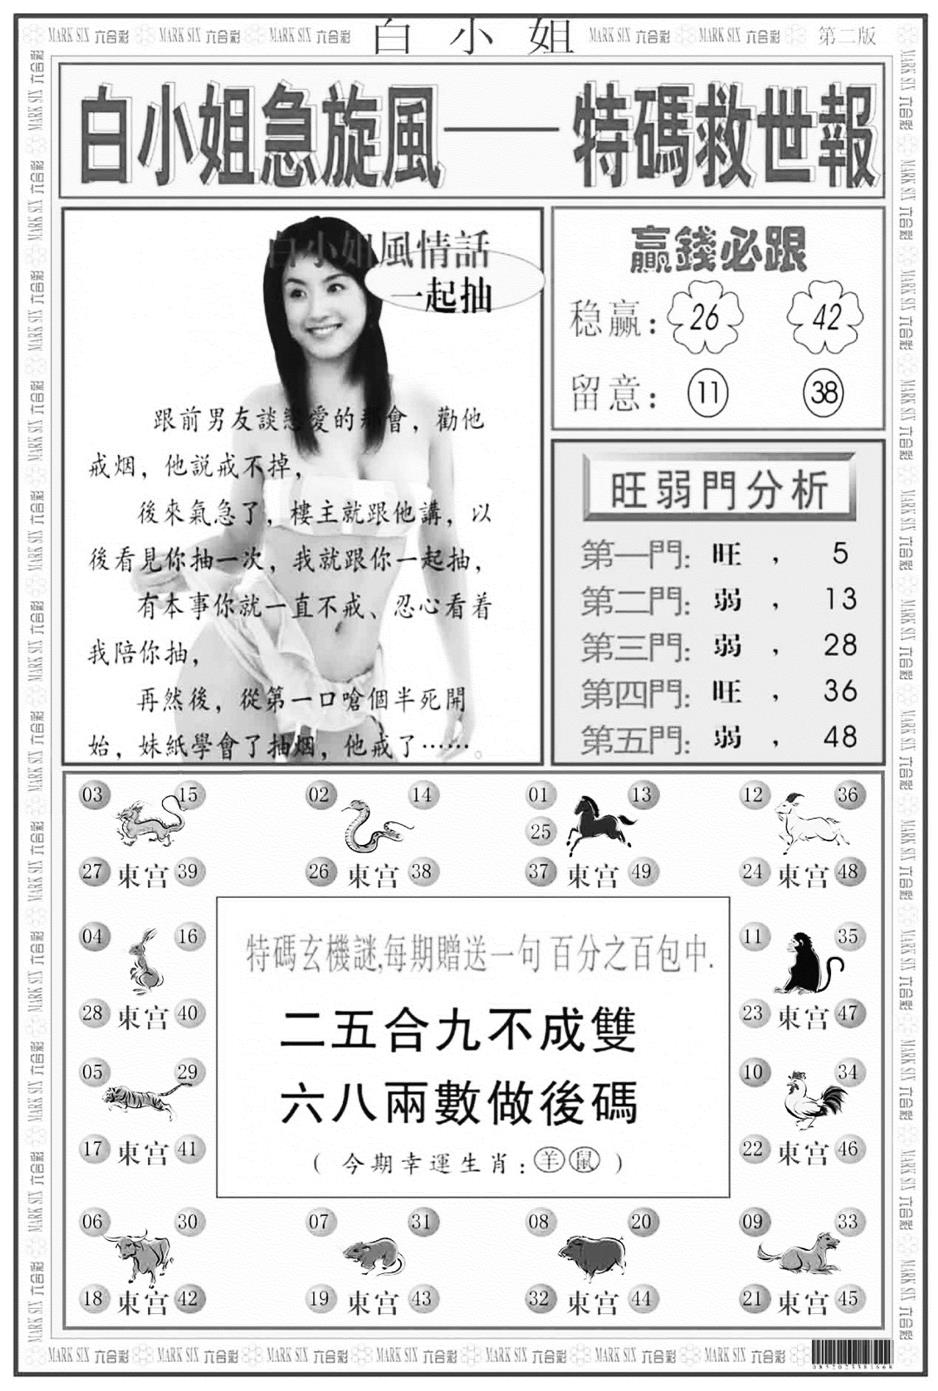 MARK SIX 六合彩 MARK SIX 六合彩 MARK SIX 六合彩 白小姐 MARK SIX 六合彩 MARK SIX 六合彩 第二版
白小姐急旋風——特碼救世報
白小姐風情話
一起抽
跟前男友談戀愛的那會，勸他
戒烟，他説戒不掉，
後來氣急了，樓主就跟他講，以
後看見你抽一次，我就跟你一起抽，
有本事你就一直不戒、忍心看着
我陪你抽，
再然後，從第一口嗆個半死開
始，妹紙學會了抽烟，他戒了……。
贏錢必跟
稳赢：26 42
留意：11 38
旺弱門分析
第一門：旺，5
第二門：弱，13
第三門：弱，28
第四門：旺，36
第五門：弱，48
03 15 02 14 01 13 12 36
25
27 東宫 39 26 東宫 38 37 東宫 49 24 東宫 48
04 16 11 35
28 東宫 40 23 東宫 47
05 29 10 34
17 東宫 41 22 東宫 46
特碼玄機謎,每期贈送一句 百分之百包中.
二五合九不成雙
六八兩數做後碼
（今期幸運生肖：羊 鼠）
06 30 07 31 08 20 09 33
18 東宫 42 19 東宫 43 32 東宫 44 21 東宫 45
MARK SIX 六合彩 MARK SIX 六合彩 MARK SIX 六合彩 MARK SIX 六合彩 MARK SIX 六合彩 MARK SIX 六合彩 MARK SIX 六合彩